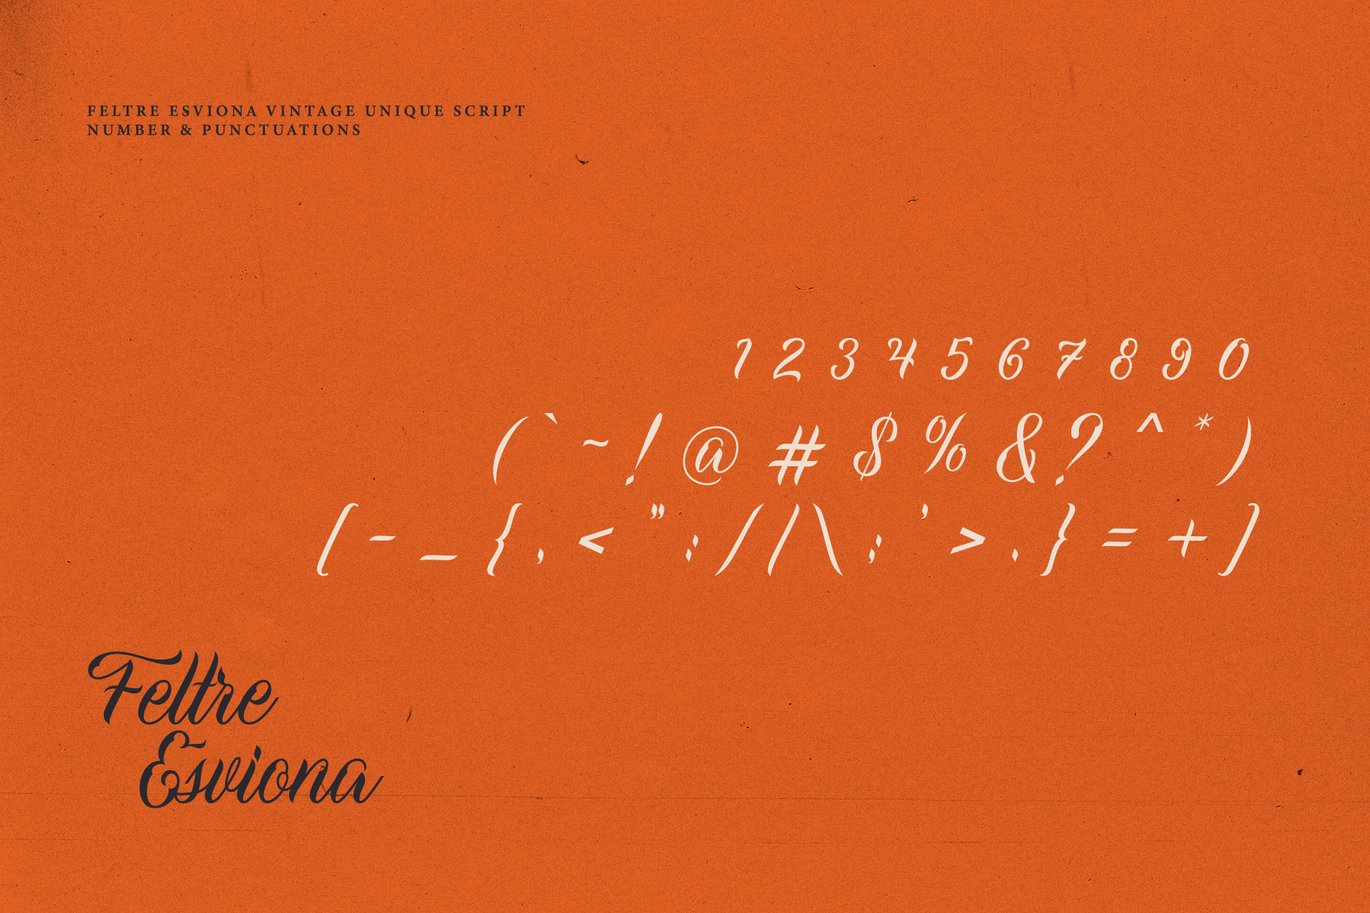 FELTRE ESVIONA VINTAGE UNIQUE SCRIPT
NUMBER & PUNCTUATIONS
1 2 3 4 5 6 7 8 9 0
( ` ~ ! @ # $ % & ? ^ * )
[ - _ { , < " : / | \ ; ' > . } = + ]
Feltre
Esviona